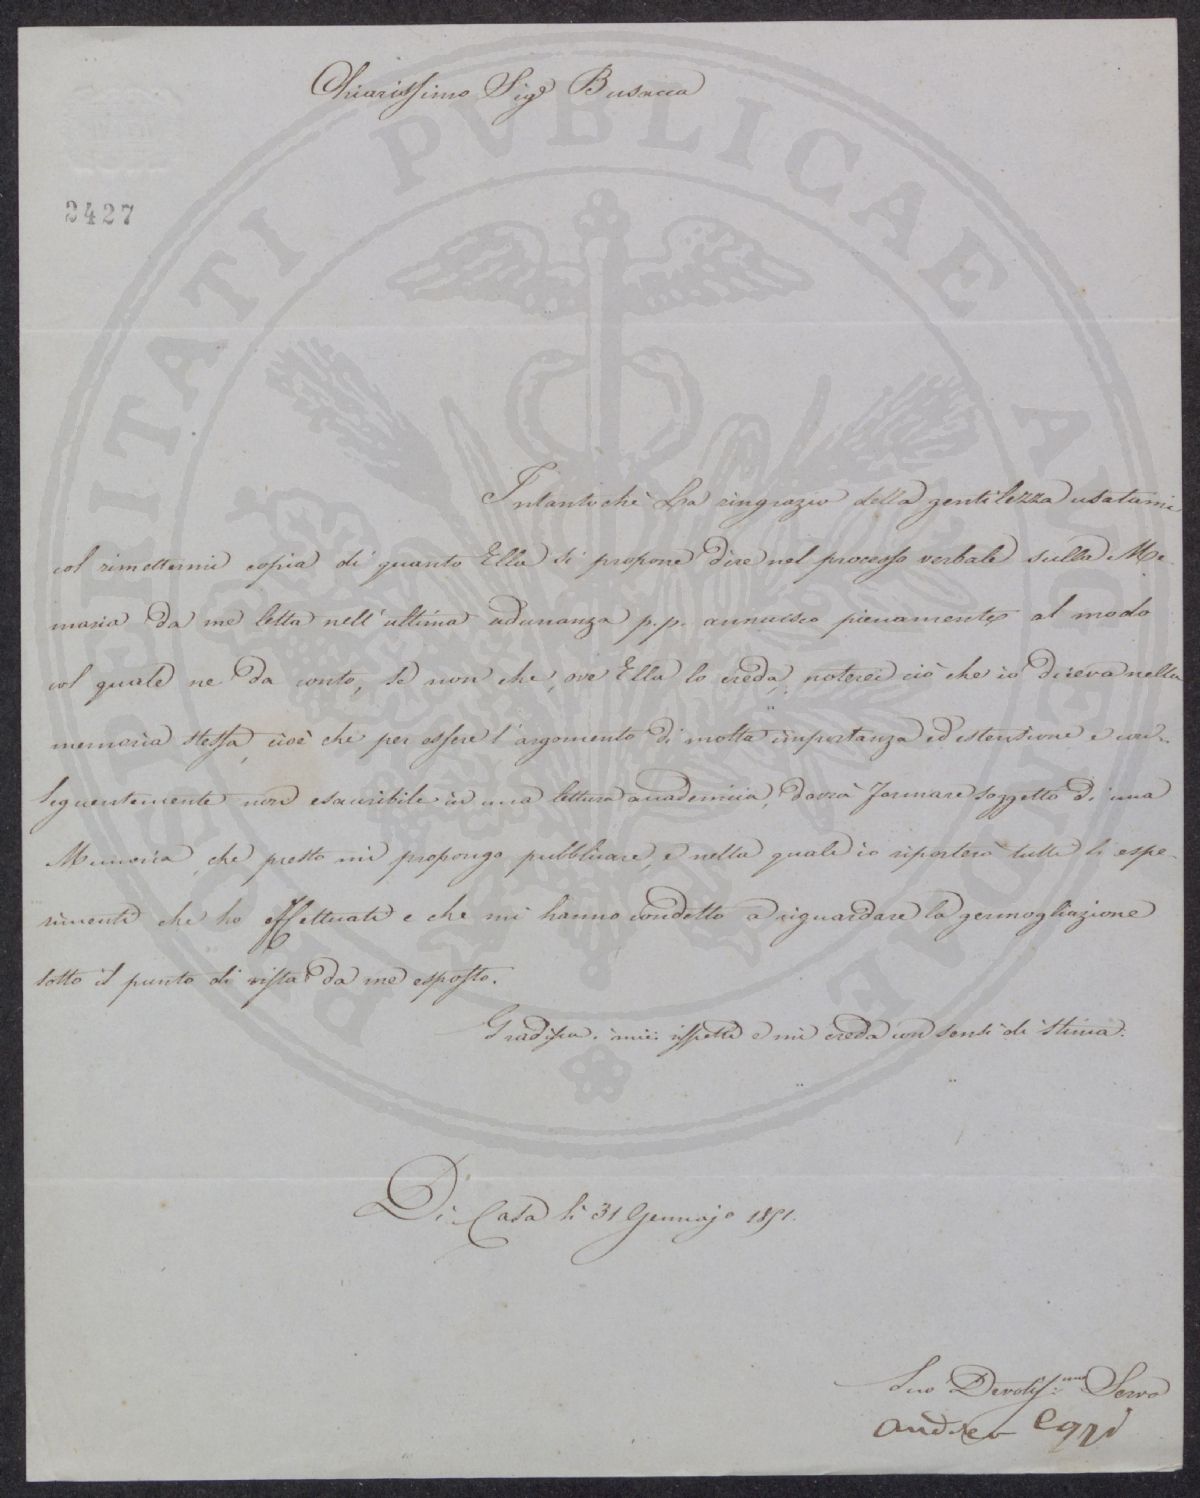 Chiarissimo Sigr Busacca
2427
Intantochè La ringrazio della gentilezza usatami
col rimettermi copia di quanto Ella si propone dire nel processo verbale sulla Me-
moria da me letta nell'ultima adunanza p.p. annuisco pienamente al modo
col quale ne da conto, se non che, ove Ella lo creda, noterei ciò che io diceva nella
memoria stessa, cioè che per essere l'argomento di molta importanza ed estensione e con-
seguentemente non esauribile in una lettura accademica, dovrà formare soggetto di una
Memoria, che presto mi propongo pubblicare, e nella quale io riporterò tutti li espe-
rimenti che ho effettuati e che mi hanno condotto a riguardare la germogliazione
sotto il punto di vista da me esposto.
Gradisca i miei rispetti e mi creda con sensi di stima.
Di Casa li 31 Gennajo 1851.
Suo Devotiss:mo Servo
Andrea
PROSPERITATI PVBLICAE AVGENDAE